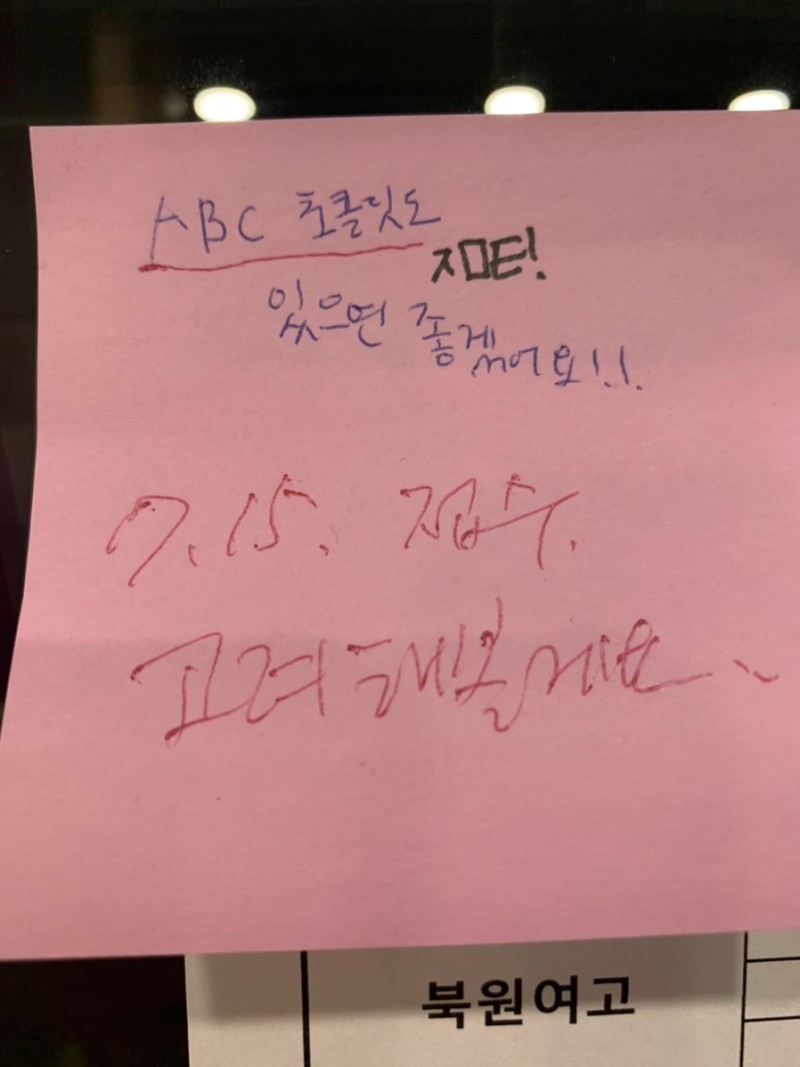 ABC 초콜릿도
지미티!
있으면 좋겠어요!!
7.15. 접수.
고려해볼게요..
북원여고